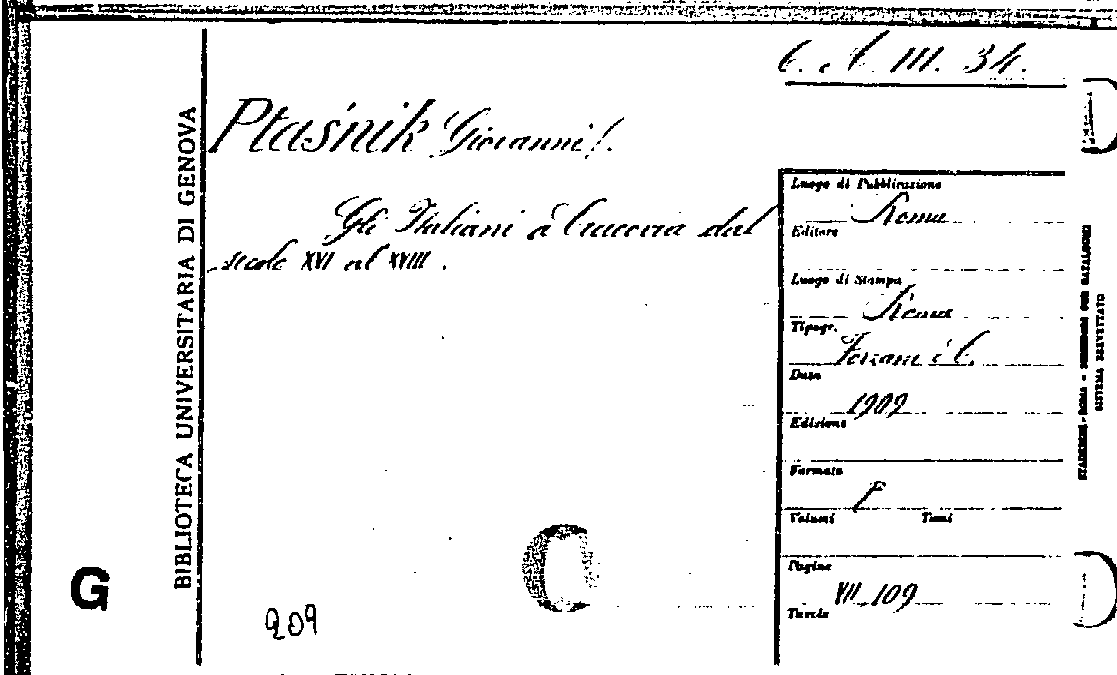 6. A. III. 34.
Ptaśnik Giovanni/.
Gli Italiani a Cracovia dal
secolo XVI al XVIII.
BIBLIOTECA UNIVERSITARIA DI GENOVA
G
209
Luogo di Pubblicazione
Roma
Editore
Luogo di Stampa
Roma
Tipogr.
Forzani e C.
Data
1909
Edizione
Formato
Volumi Tomi
Pagine
VII 109
Tavole
STADERINI - ROMA - PER CATALOGHI
SISTEMA BREVETTATO